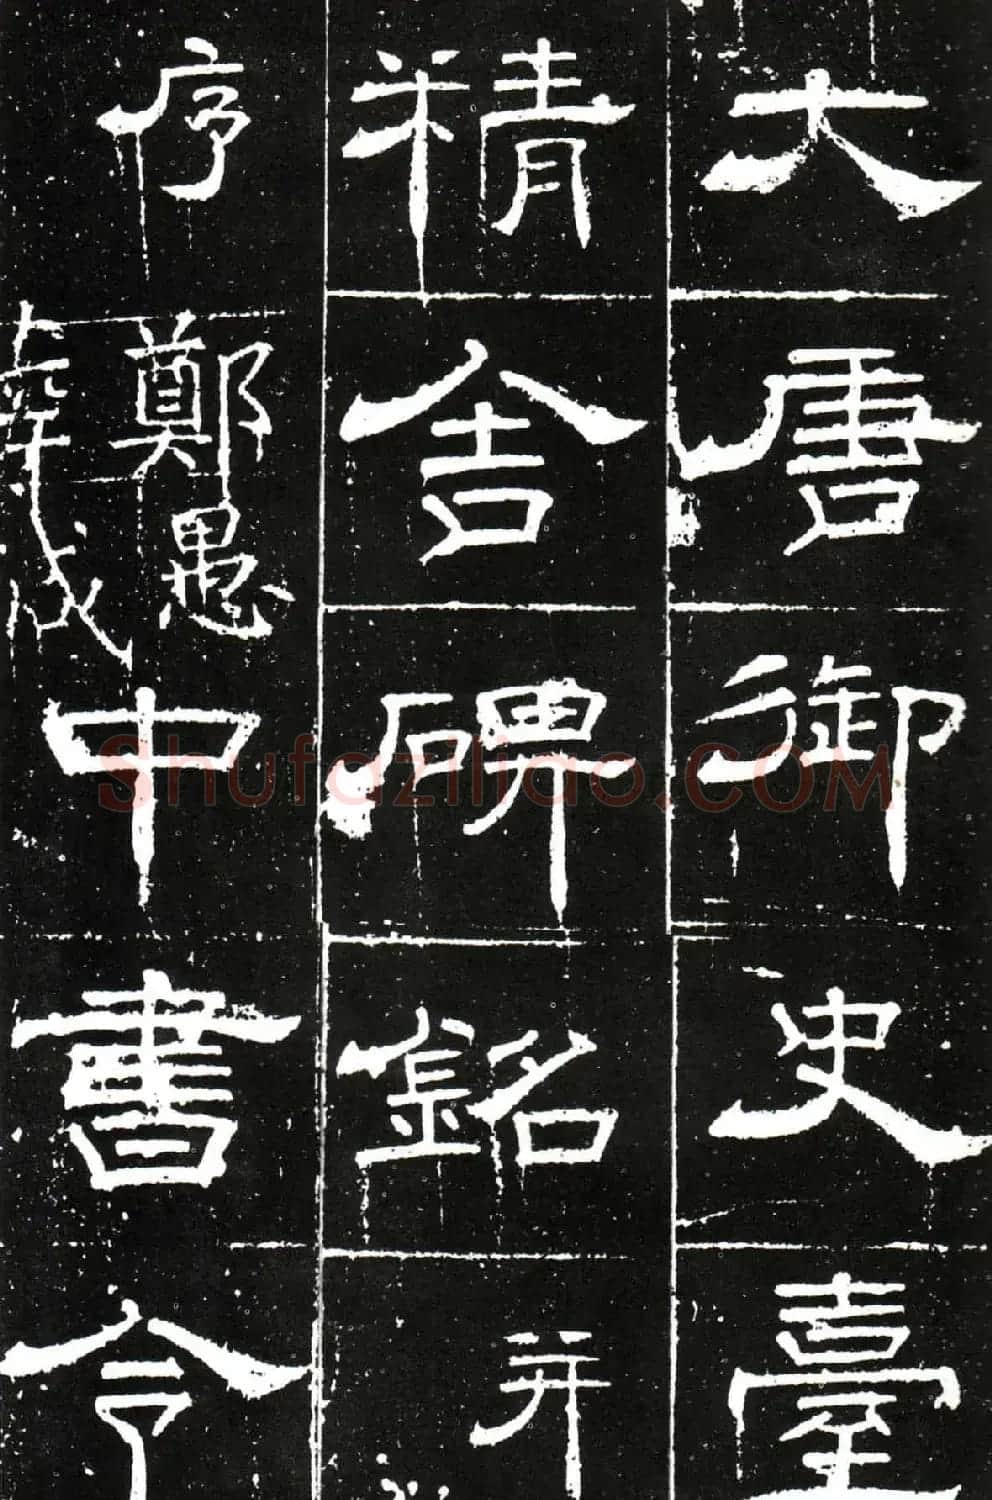 大唐御史臺
精舍碑銘并
序 鄭愚 中書令
Shufaziliao.COM